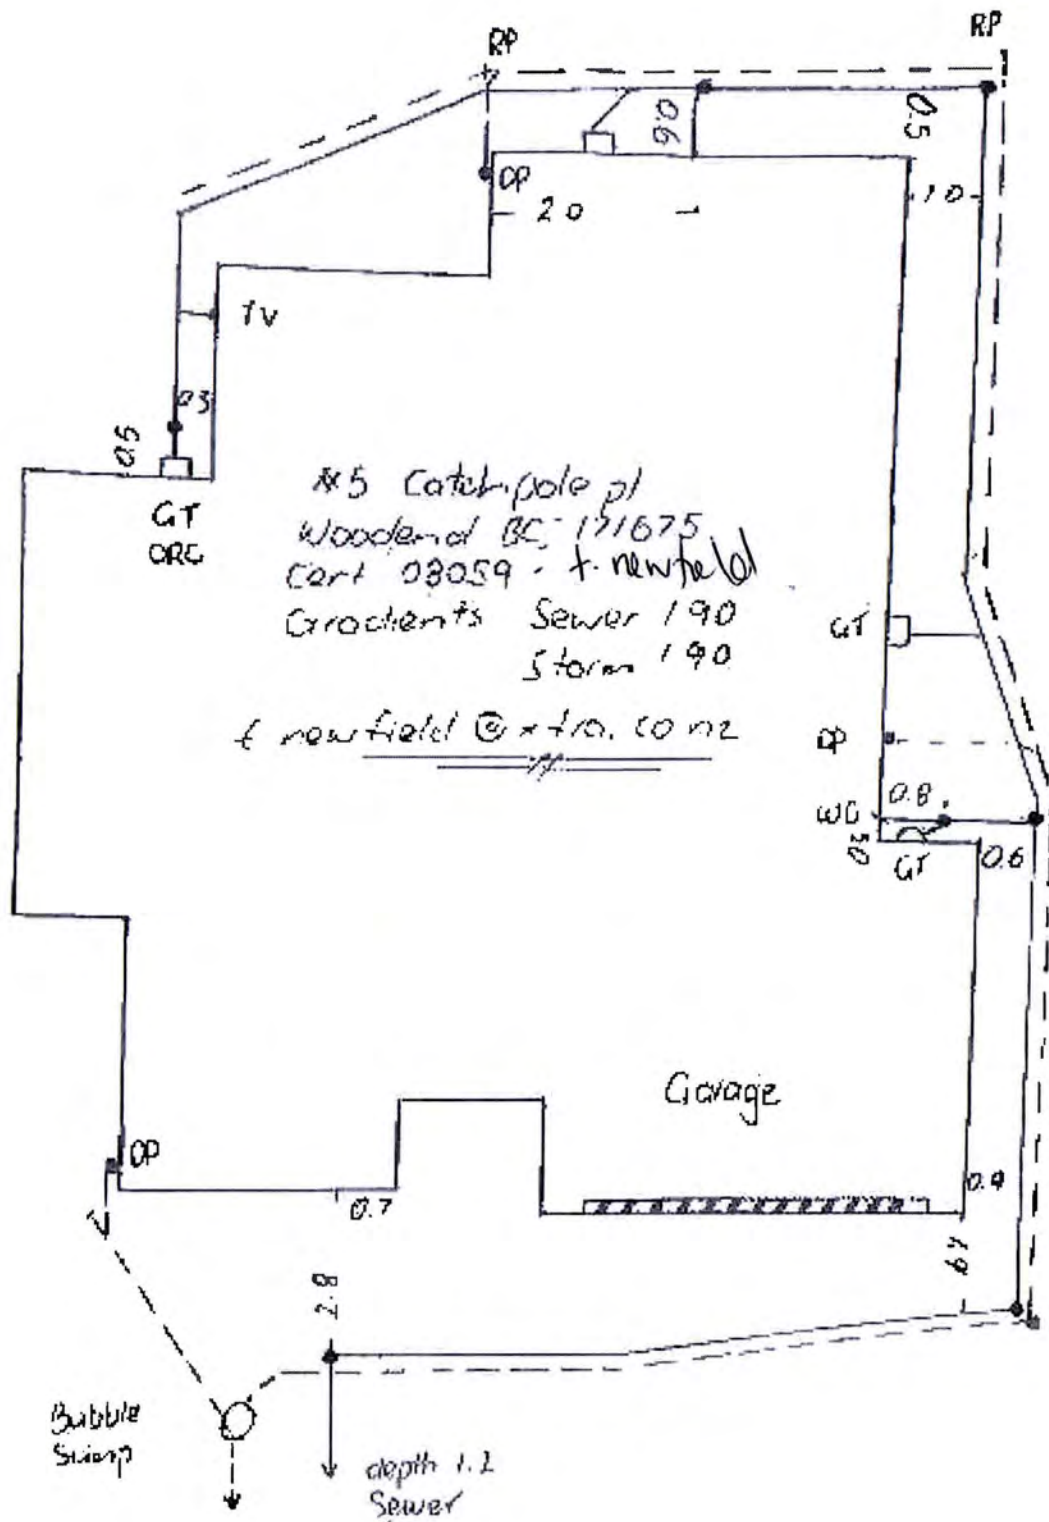 RP
RP
0.6
0.5
DP
2.0
1.0
TV
0.5
GT
ORG
#5 Catchpole pl
Woodend BC 171675
Cert 03059 - t. newfield
Gradients Sewer 190
Storm 190
t newfield @ xtra. co nz
GT
DP
WC
0.8
GT
0.6
Garage
DP
0.7
0.9
2.8
Bubble
Sump
depth 1.2
Sewer